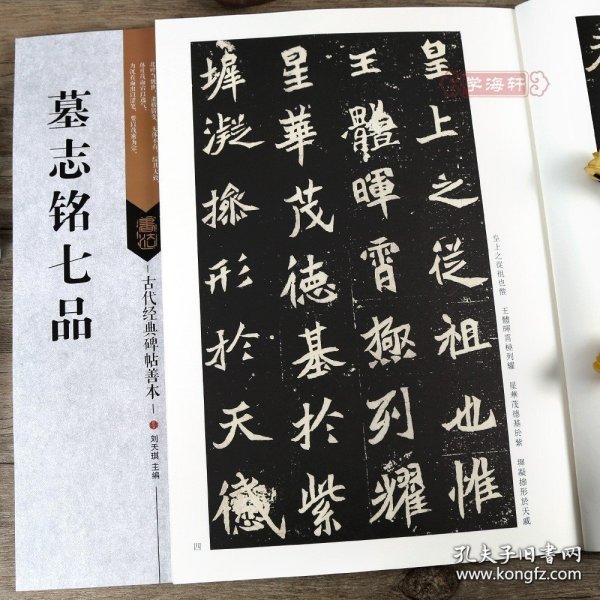 墓志铭七品
古代经典碑帖善本
刘天琪 主编
学海轩
皇上之従祖也惟
王體暉霄極列耀
星華茂德基於紫
墀凝操形於天
皇上之從祖也惟 王體暉霄極列耀 星華茂德基於紫 墀凝操形於天戚
四
孔夫子旧书网
www.kongfz.com